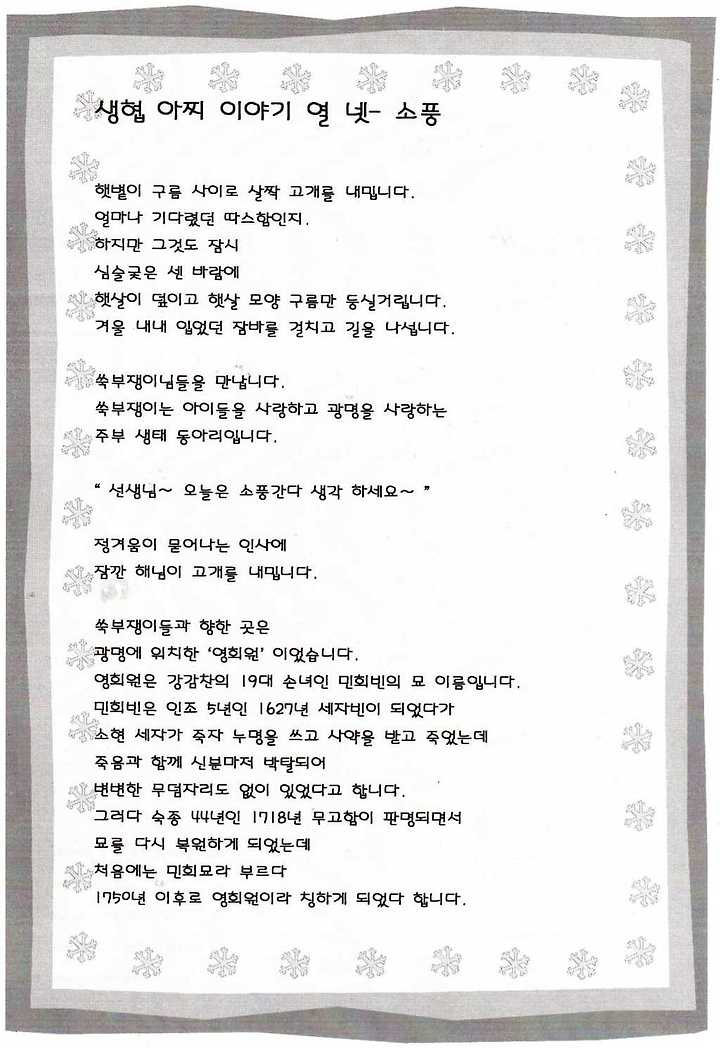 생협 아찌 이야기 열 넷- 소풍
햇볕이 구름 사이로 살짝 고개를 내밉니다.
얼마나 기다렸던 따스함인지.
하지만 그것도 잠시
심술궂은 센 바람에
햇살이 덮이고 햇살 모양 구름만 둥실거립니다.
겨울 내내 입었던 잠바를 걸치고 길을 나섭니다.
쑥부쟁이님들을 만납니다.
쑥부쟁이는 아이들을 사랑하고 광명을 사랑하는
주부 생태 동아리입니다.
“ 선생님~ 오늘은 소풍간다 생각 하세요~ ”
정겨움이 묻어나는 인사에
잠깐 해님이 고개를 내밉니다.
쑥부쟁이들과 향한 곳은
광명에 위치한 ‘영회원’ 이었습니다.
영회원은 강감찬의 19대 손녀인 민회빈의 묘 이름입니다.
민회빈은 인조 5년인 1627년 세자빈이 되었다가
소현 세자가 죽자 누명을 쓰고 사약을 받고 죽었는데
죽음과 함께 신분마저 박탈되어
변변한 무덤자리도 없이 있었다고 합니다.
그러다 숙종 44년인 1718년 무고함이 판명되면서
묘를 다시 복원하게 되었는데
처음에는 민회묘라 부르다
1750년 이후로 영회원이라 칭하게 되었다 합니다.